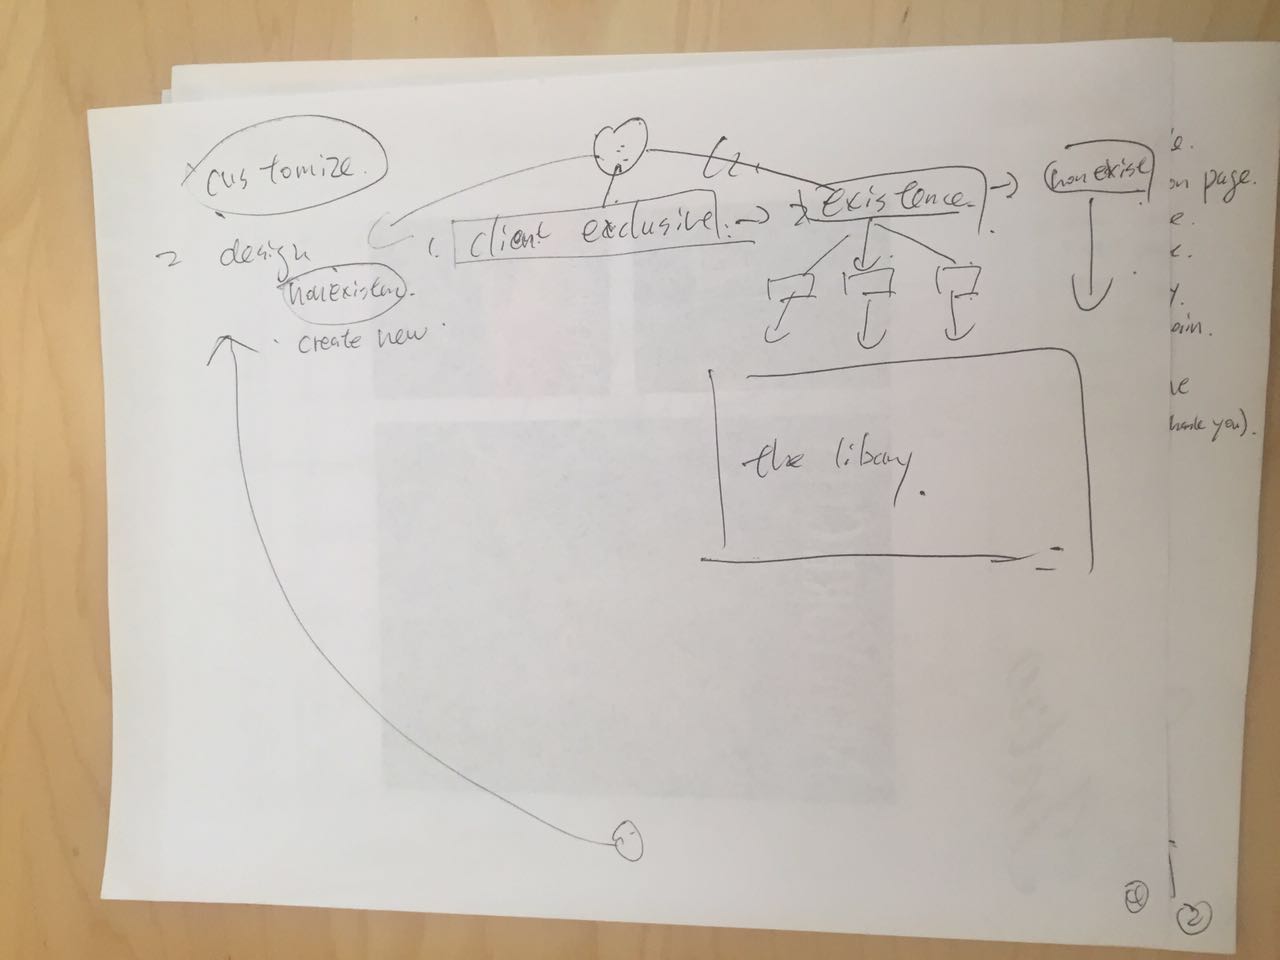 customize.
2 design
nonexisten.
create new.
1. client exclusive.
2.
existence.
nonexist
the libary.
on page.
hank you).
2